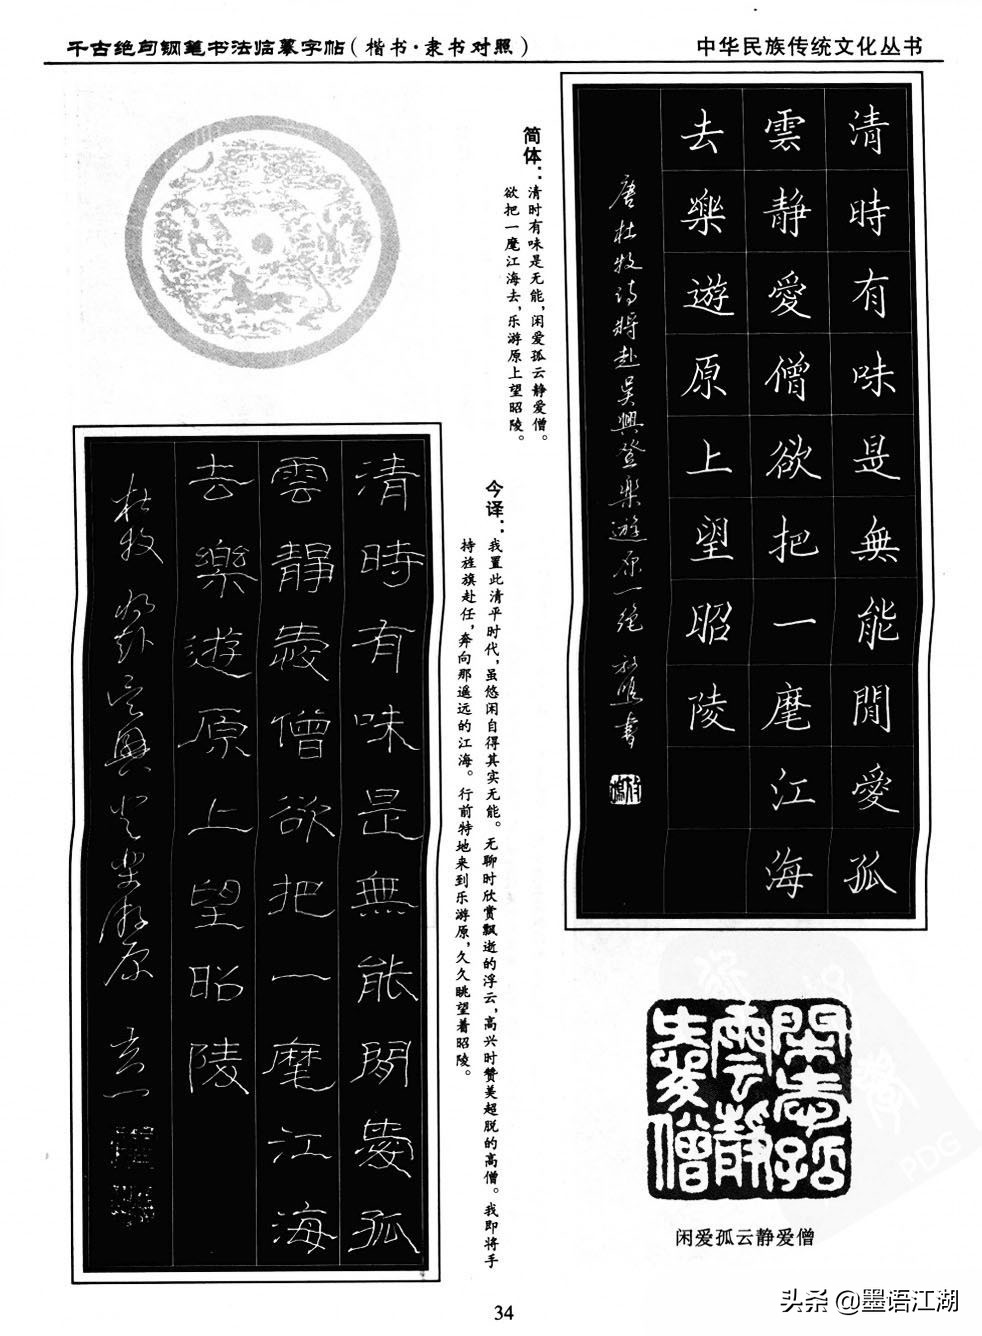 千古绝句钢笔书法临摹字帖(楷书·隶书对照)
中华民族传统文化丛书
清時有味是無能閒愛孤
雲靜愛僧欲把一麾江海
去樂遊原上望昭陵
唐杜牧诗將赴吴興登樂遊原一绝
简体：清时有味是无能，闲爱孤云静爱僧。
欲把一麾江海去，乐游原上望昭陵。
今译：我置此清平时代，虽悠闲自得其实无能。无聊时欣赏飘逝的浮云，高兴时赞美超脱的高僧。我即将手
持旌旗赴任，奔向那遥远的江海。行前特地来到乐游原，久久眺望着昭陵。
清時有味是無能閒愛孤
雲靜愛僧欲把一麾江海
去樂遊原上望昭陵
杜牧將赴吴興登樂游原
閑愛孤雲靜愛僧
闲爱孤云静爱僧
PDG
34
头条 @墨语江湖